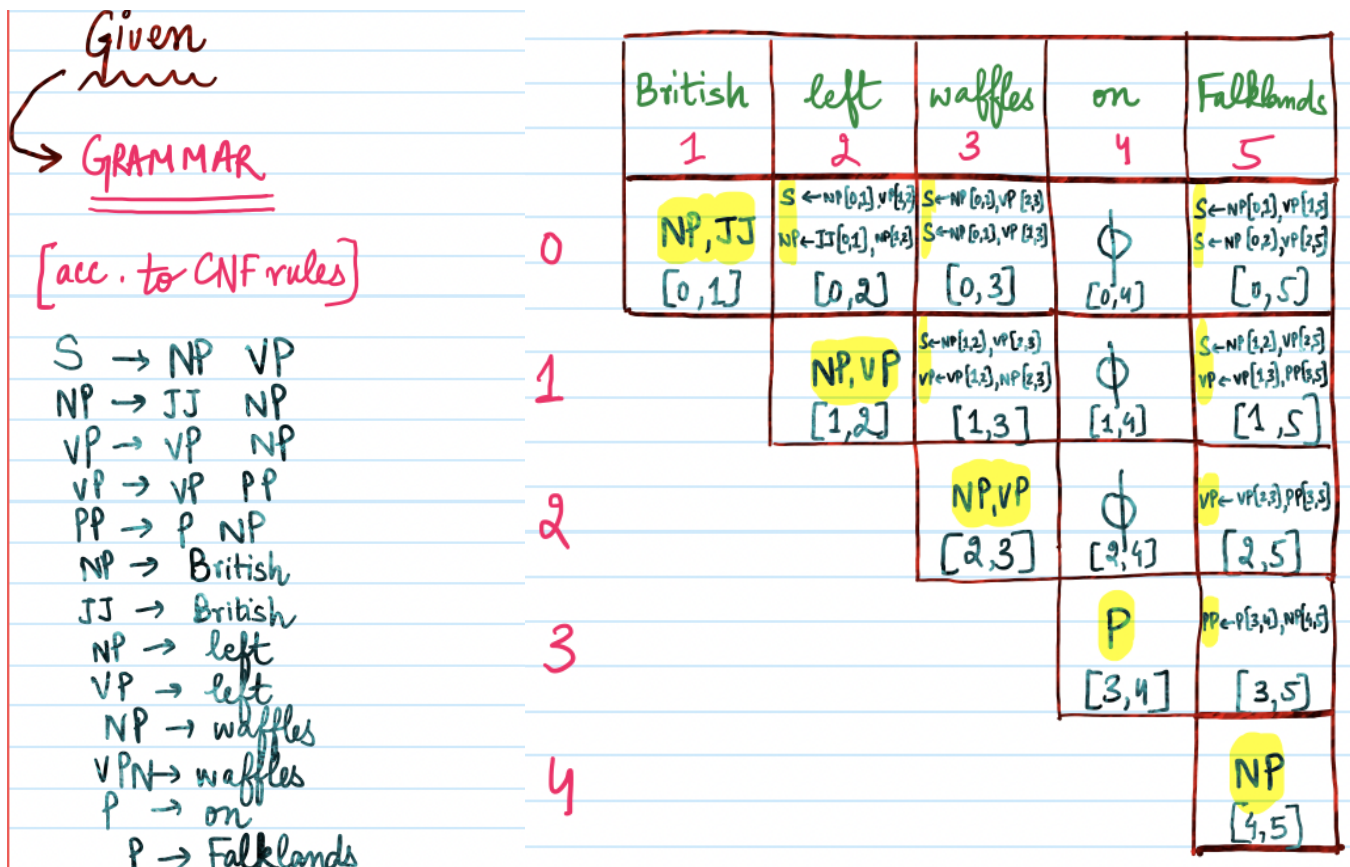 Given
GRAMMAR
[acc. to CNF rules]
S → NP VP
NP → JJ NP
VP → VP NP
VP → VP PP
PP → P NP
NP → British
JJ → British
NP → left
VP → left
NP → waffles
VPN→ waffles
P → on
P → Falklands
British left waffles on Falklands
1 2 3 4 5
0
NP, JJ
[0,1]
S ← NP[0,1], VP[1,2]
NP ← JJ[0,1], NP[1,2]
[0,2]
S ← NP[0,2], VP[2,3]
S ← NP[0,1], VP[1,3]
[0,3]
ϕ
[0,4]
S ← NP[0,1], VP[1,5]
S ← NP[0,2], VP[2,5]
[0,5]
1
NP, VP
[1,2]
S ← NP[1,2], VP[2,3]
VP ← VP[1,2], NP[2,3]
[1,3]
ϕ
[1,4]
S ← NP[1,2], VP[2,5]
VP ← VP[1,3], PP[3,5]
[1,5]
2
NP, VP
[2,3]
ϕ
[2,4]
VP ← VP[2,3], PP[3,5]
[2,5]
3
P
[3,4]
PP ← P[3,4], NP[4,5]
[3,5]
4
NP
[4,5]